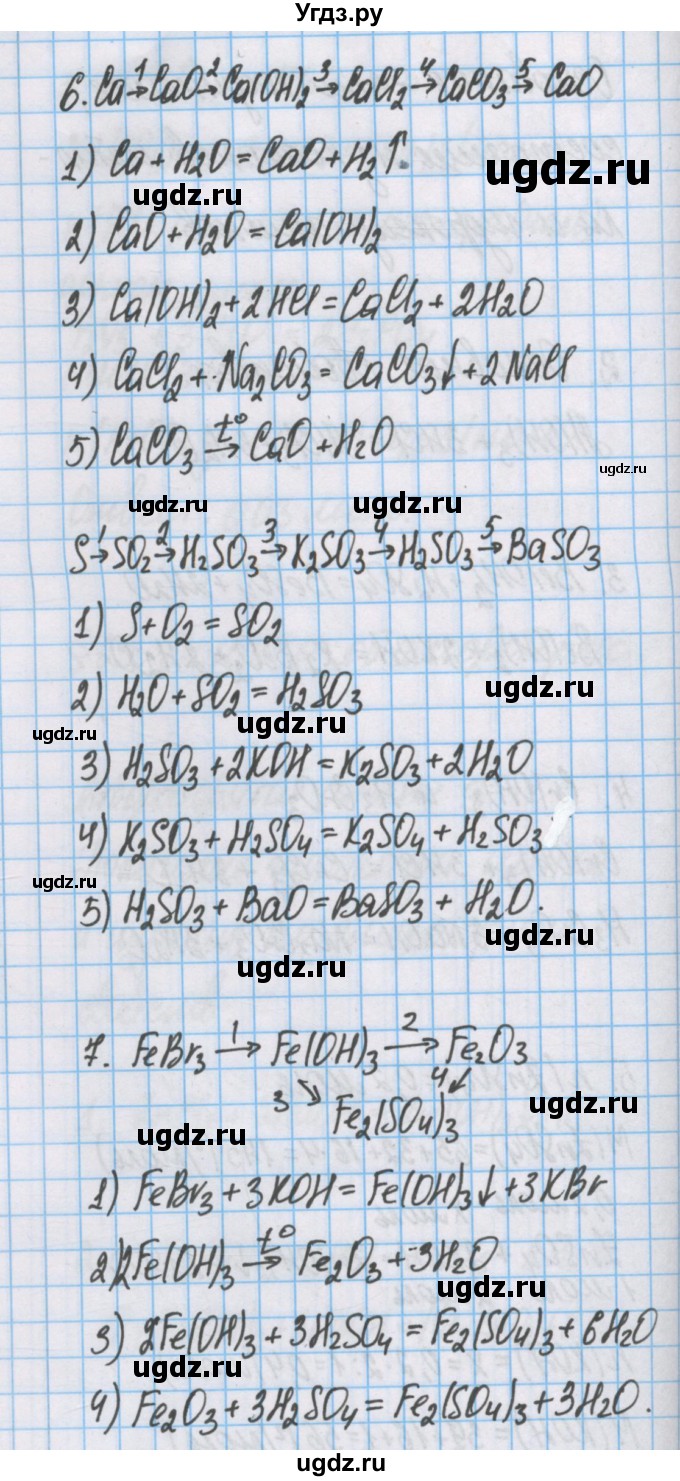 Угдз.ру
6. Ca →¹ CaO →² Ca(OH)₂ →³ CaCl₂ →⁴ CaCO₃ →⁵ CaO
1) Ca + H₂O = CaO + H₂↑.
ugdz.ru
ugdz.ru
2) CaO + H₂O = Ca(OH)₂
3) Ca(OH)₂ + 2HCl = CaCl₂ + 2H₂O
ugdz.ru
4) CaCl₂ + Na₂CO₃ = CaCO₃↓ + 2NaCl
5) CaCO₃ →t° CaO + H₂O
ugdz.ru
ugdz.ru
ugdz.ru
S →¹ SO₂ →² H₂SO₃ →³ K₂SO₃ →⁴ H₂SO₃ →⁵ BaSO₃
1) S + O₂ = SO₂
2) H₂O + SO₂ = H₂SO₃
ugdz.ru
ugdz.ru
ugdz.ru
3) H₂SO₃ + 2KOH = K₂SO₃ + 2H₂O
4) K₂SO₃ + H₂SO₄ = K₂SO₄ + H₂SO₃
ugdz.ru
5) H₂SO₃ + BaO = BaSO₃ + H₂O.
ugdz.ru
ugdz.ru
7. FeBr₃ →¹ Fe(OH)₃ →² Fe₂O₃
3 ↘ 4 ↙
Fe₂(SO₄)₃
ugdz.ru
ugdz.ru
1) FeBr₃ + 3KOH = Fe(OH)₃↓ + 3KBr
2) 2Fe(OH)₃ →t° Fe₂O₃ + 3H₂O
ugdz.ru
3) 2Fe(OH)₃ + 3H₂SO₄ = Fe₂(SO₄)₃ + 6H₂O
ugdz.ru
4) Fe₂O₃ + 3H₂SO₄ = Fe₂(SO₄)₃ + 3H₂O.
ugdz.ru